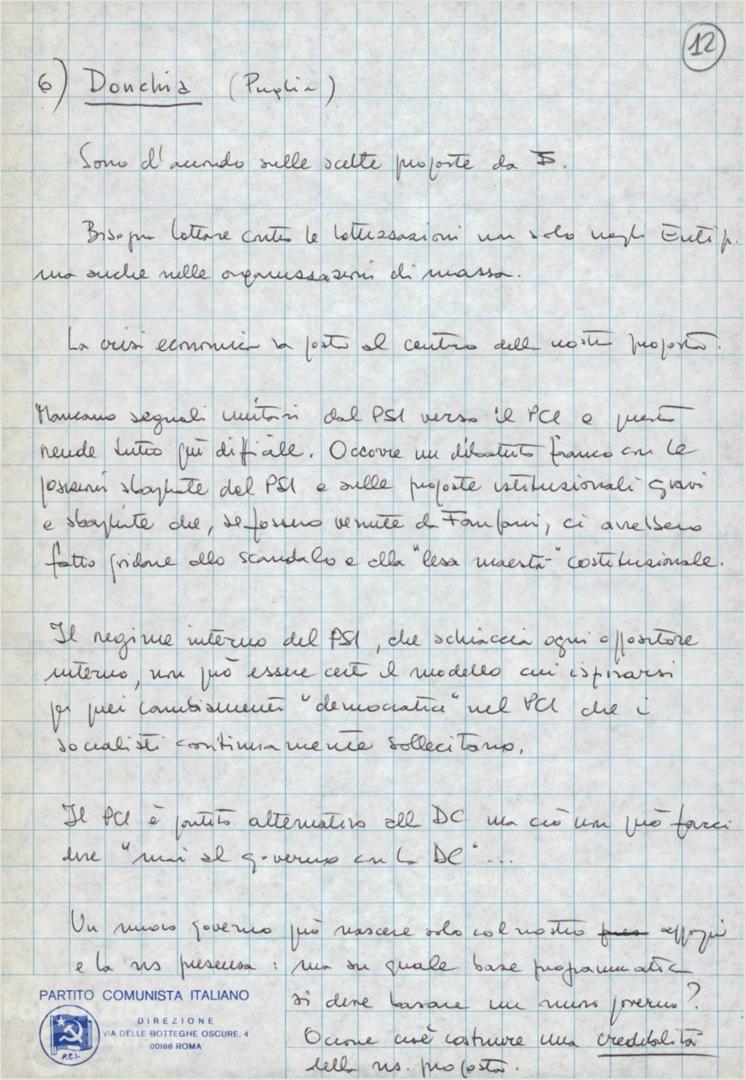 12
6) Donchia (Puglia)
Sono d'accordo sulle scelte proposte da
Bisogna lottare contro le lottizzazioni non solo negli Enti p.
ma anche nelle organizzazioni di massa.
La crisi economica va posta al centro della nostra proposta.
Mancano segnali unitari dal PSI verso il PCI e questo
rende tutto più difficile. Occorre un dibattito franco con le
posizioni sbagliate del PSI e sulle proposte istituzionali gravi
e sbagliate che, se fossero venute da Fanfani, ci avrebbero
fatto gridare allo scandalo e alla "lesa maestà" costituzionale.
Il regime interno del PSI, che schiaccia ogni oppositore
interno, non può essere certo il modello cui ispirarsi
per quei cambiamenti "democratici" nel PCI che i
socialisti continuamente sollecitano.
Il PCI è partito alternativo alla DC ma ciò non può farci
dire "mai al governo con la DC"...
Un nuovo governo può nascere solo col nostro appoggio
e la ns presenza: ma su quale base programmatica
si deve basare un nuovo governo?
Occorre cioè costruire una credibilità
della ns. proposta.
PARTITO COMUNISTA ITALIANO
DIREZIONE
VIA DELLE BOTTEGHE OSCURE, 4
00186 ROMA
P.C.I.